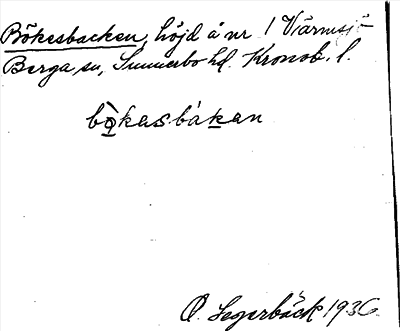 Bökesbacken, höjd å nr 1 Värmsjö
Berga sn, Sunnerbo hd. Kronob. l.
bö̀kasbákan
O. Segerbäck 1936.